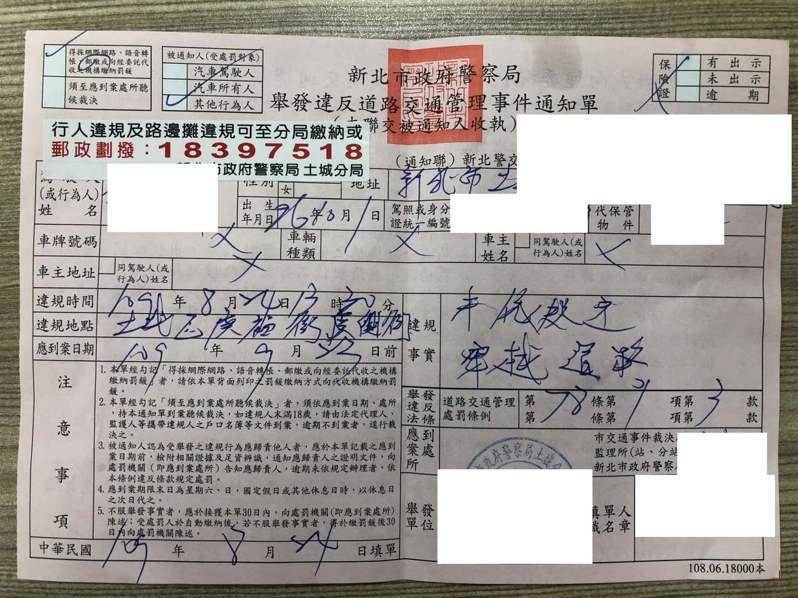 得採網際網路、語音轉
帳、郵繳或向經委託代
收之機構繳納罰鍰
須至應到案處所聽
候裁決
被通知人(受處罰對象)
汽車駕駛人
汽車所有人
其他行為人
新北市政府警察局
舉發違反道路交通管理事件通知單
保險證
有出示
未出示
逾期
行人違規及路邊攤違規可至分局繳納或
郵政劃撥:18397518
新北市政府警察局 土城分局
(通知聯)新北警交
(或行為人)
姓名
性別
女
地址
新北市土
出生
年月日
駕照或身分
證統一編號
代保管
物件
車牌號碼
車輛
種類
車主
姓名
同駕駛人(或
行為人)姓名
車主地址
同駕駛人(或
行為人)地址
違規時間
109年8月24日13時20分
違規地點
應到案日期
109年9月23日前
違規事實
穿越道路
舉發違反法條
道路交通管理
處罰條例
第78條第1項第3款
注意事項
1. 本單經勾記「得採網際網路、語音轉帳、郵繳或向經委託代收之機構
繳納罰鍰」者,請依本單背面列印之罰鍰繳納方式向代收機構繳納罰
鍰。
2. 本單經勾記「須至應到案處所聽候裁決」者,須依應到案日期、處所、
持本通知單到案聽候裁決。如違規人未滿18歲,請由法定代理人、
監護人等攜帶違規人之戶口名簿等文件到案,逾期不到案者,逕行裁
決之。
3. 被通知人認為受舉發之違規行為應歸責他人者,應於本單記載之應到
案日期前,檢附相關證據及足資辨識、通知應歸責人之證明文件,向
處罰機關(即應到案處所)告知應歸責人,逾期未依規定辦理者,依
本條例違反條款規定處罰。
4. 應到案期限末日為星期六、日、國定假日或其他休息日時,以休息日
之次日代之。
5. 不服舉發事實者,應於接獲本單30日內,向處罰機關(即應到案處所)
陳述;受處罰人於自動繳納後,若不服舉發事實者,得於繳罰鍰後30
日內向處罰機關陳述。
應到案處所
市交通事件裁決
監理所(站、分站
新北市政府警察
舉發單位
填單人
職名章
中華民國109年8月24日填單
108.06.18000本